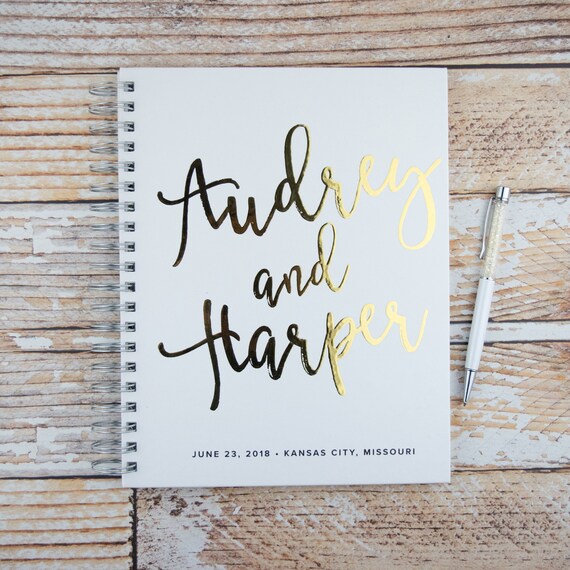 Audrey
and
Harper
JUNE 23, 2018 • KANSAS CITY, MISSOURI